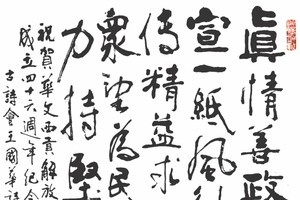 眞情善政
宣一紙風行
傳精益求
衆望為民
力持堅
祝賀華文西貢解放
成立四十六週年紀念
古詩會王國華詩